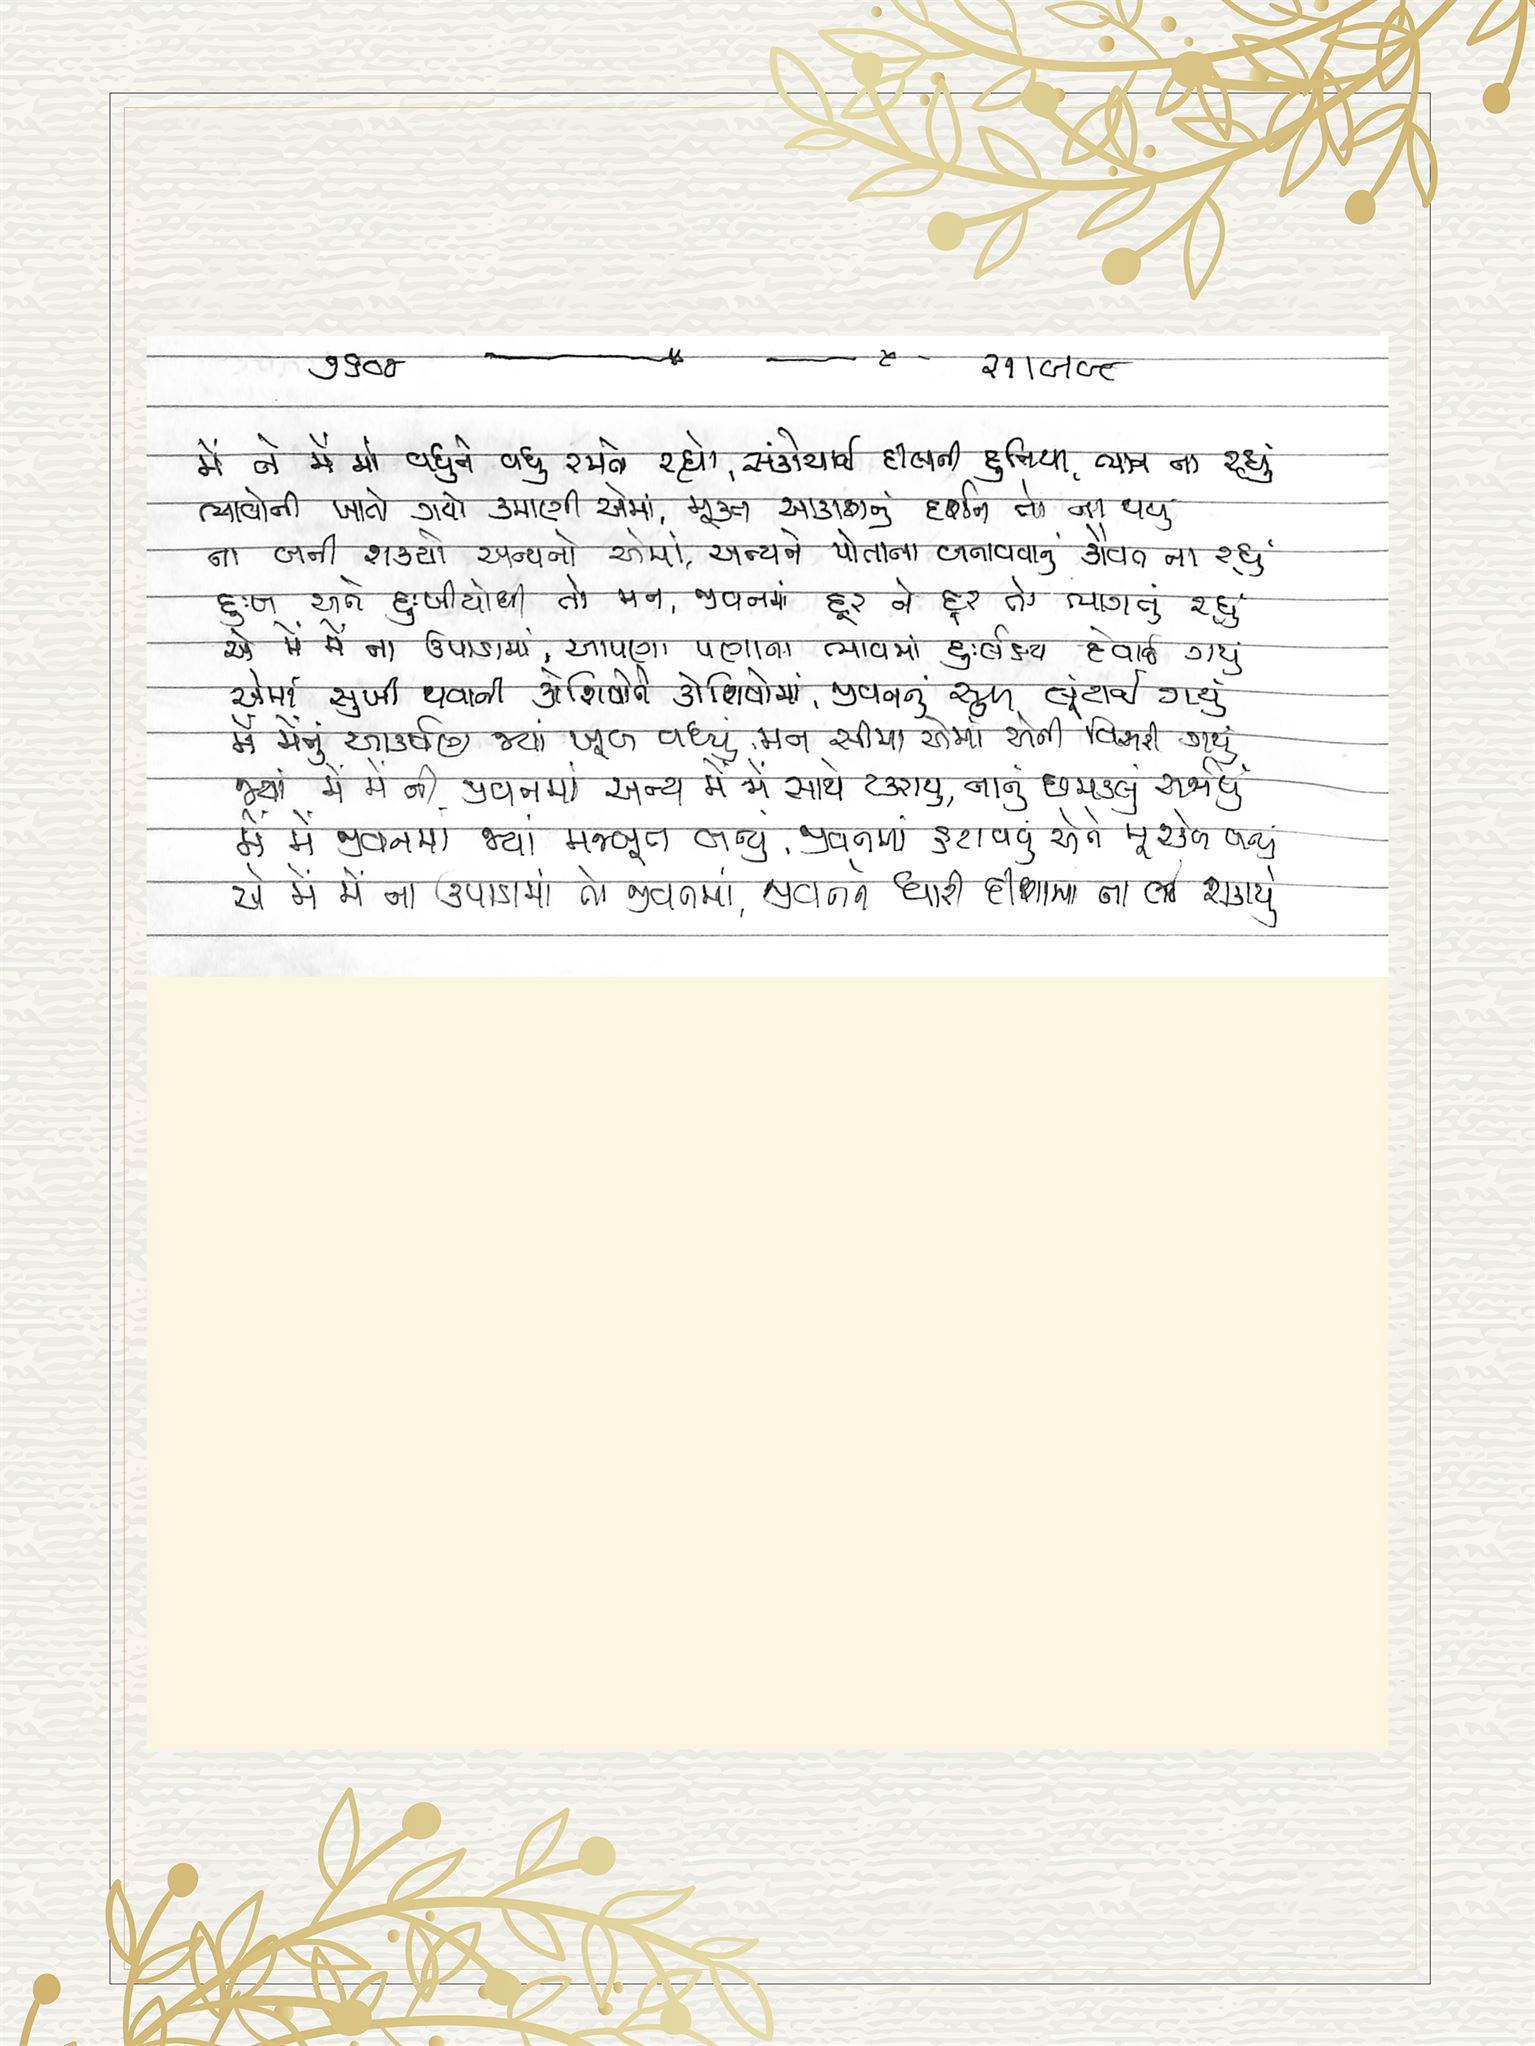 ૭૬૦૪ ૨૧।૯૯૮
મેં ને મેં માં વધુને વધુ રમતો રહ્યો, સંકોચાઈ દીલની દુનિયા, ભાન ના રહ્યું
ભાવોની ખાતો ગયો કમાણી એમાં, મૂક્ત આકાશનું દર્શન તો ના થયું
ના બની શક્યો અન્યનો એમાં, અન્યને પોતાના બનાવવાનું કૌવત ના રહ્યું
દુઃખ અને દુઃખીયોથી તો મન, જીવનમાં દૂર ને દૂર તો ભાગતું રહ્યું
એ મેં મેં ના ઉપાડામાં, આપણા પણાના ભાવમાં દુઃર્લક્ષ્ય દેવાઈ ગયું
એમાં સુખી થવાની કોશિષોને કોશિષોમાં, જીવનનું સુખ લૂંટાઈ ગયું
મેં મેંનું આકર્ષણ જ્યાં ખૂબ વધ્યું, મન સીમા એમાં એની વિસરી ગયું
જ્યાં મેં મેં ની જીવનમાં અન્ય મેં મેં સાથે ટકરાયું, નાનું છમકલું સર્જાયું
મેં મેં જીવનમાં જ્યાં મજબૂત બન્યું, જીવનમાં હટાવવું એને મૂશ્કેલ બન્યું
એ મેં મેં ના ઉપાડામાં તો જીવનમાં, જીવનને ધારી દીશામાં ના લઈ શકાયું